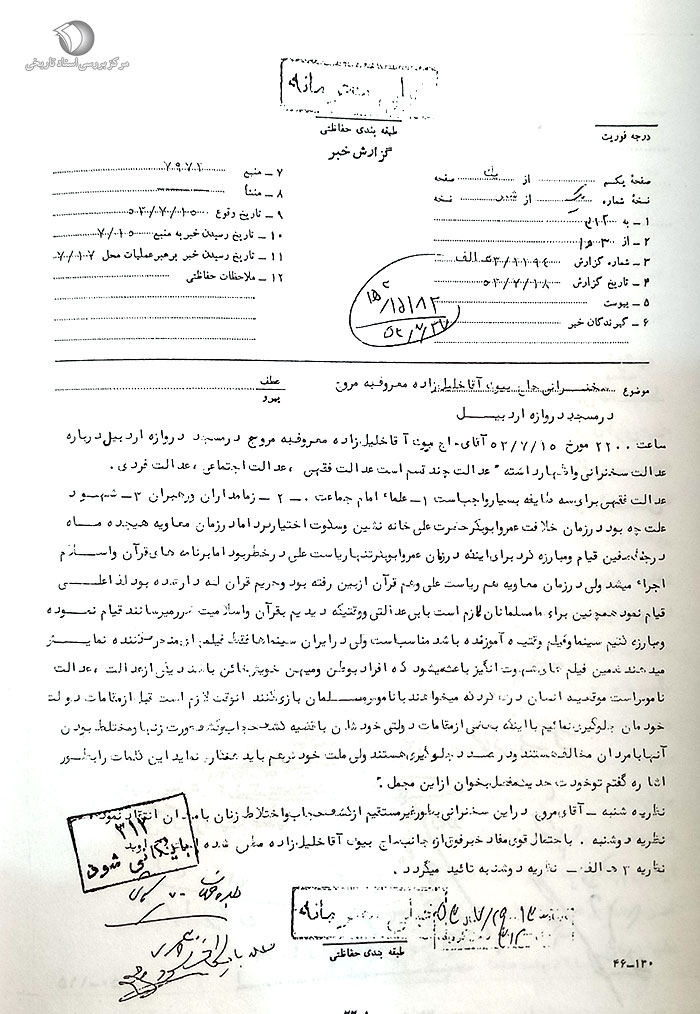 مرکز بررسی اسناد تاریخی
خیلی محرمانه
طبقه بندی حفاظتی
گزارش خبر
درجه فوریت
صفحهٔ یکم از یک صفحه
نسخهٔ شماره از نسخه
۱ ـ به ۳۱۲
۲ ـ از ۳۰ ه‍
۳ ـ شماره گزارش الف
۴ ـ تاریخ گزارش ۵۳/۷/۱۸
۵ ـ پیوست
۶ ـ گیرندگان خبر
۷ ـ منبع ۷۹۷۲
۸ ـ منشأ
۹ ـ تاریخ وقوع ۵۳/۷/۱۵
۱۰ ـ تاریخ رسیدن خبر به منبع ۷/۱۵
۱۱ ـ تاریخ رسیدن خبر برهبر عملیات محل ۷/۱۷
۱۲ ـ ملاحظات حفاظتی
موضوع سخنرانی حاج بیوک آقا خلیل زاده معروف به مروج
در مسجد دروازه اردبیل
عطف
پیرو
ساعت ۲۲۰۰ مورخ ۵۳/۷/۱۵ آقای حاج بیوک آقا خلیل زاده معروف به مروج در مسجد دروازه اردبیل درباره
عدالت سخنرانی و اظهار داشته " عدالت چند قسم است عدالت فقهی ، عدالت اجتماعی ، عدالت فردی .
عدالت فقهی برای سه طایفه بسیار واجب است ۱ـ علماء امام جماعت ۲ ـ زمامداران و رهبران ۳ـ شهود
علت چه بود در زمان خلافت عمر و ابوبکر حضرت علی خانه نشین و سکوت اختیار کرد اما در زمان معاویه هیجده ماه
در جنگ صفین قیام و مبارزه کرد برای اینکه در زمان عمر و ابوبکر تنها ریاست علی در خطر بود اما برنامه های قرآن و اسلام
اجراء میشد ولی در زمان معاویه هم ریاست علی و هم قرآن از بین رفته بود و حریم قرآن لکه دار شده بود لذا علی
قیام نمود همچنین برای ما مسلمانان لازم است با بی عدالتی و وقتیکه دیدیم بقرآن و اسلامیت ضرر میرسانند قیام نموده
و مبارزه کنیم سینما و فیلم وقتیکه آموزنده باشد مناسب است ولی در ایران سینماها فقط فیلمهای گمراه کننده نمایش
میدهند همین فیلم های شهوت انگیز باعث میشود که افراد بوطن و میهن خویش خائن باشند یکی از عدالت ، عدالت
ناموس است موقعیکه انسان درک کرد که میخواهند با ناموس مسلمان بازی کنند آنوقت لازم است قبل از مقامات دولت
خودمان جلوگیری نمائیم با اینکه بعضی از مقامات دولتی خودشان با قضیه کشف حجاب و کشف صورت زنها و مختلط بودن
آنها با مردان مخالف هستند و در صدد جلوگیری هستند ولی ملت خودش هم باید همفکری نماید این کلمات را بطور
اشاره گفتم تو خود حدیث مفصل بخوان از این مجمل "
نظریه شنبه ـ آقای مروج در این سخنرانی بطور غیر مستقیم از کشف حجاب و اختلاط زنان با مردان انتقاد نموده
نظریه دوشنبه . با احتمال قوی مفاد خبر فوق از جانب حاج بیوک آقا خلیل زاده مطرح شده
نظریه ۳ ه‍ الف ـ نظریه دوشنبه تائید میگردد .
۳۱۲
بایگانی شود
خیلی محرمانه
طبقه بندی حفاظتی
۳۱۲
۴۶ـ۱۳۰